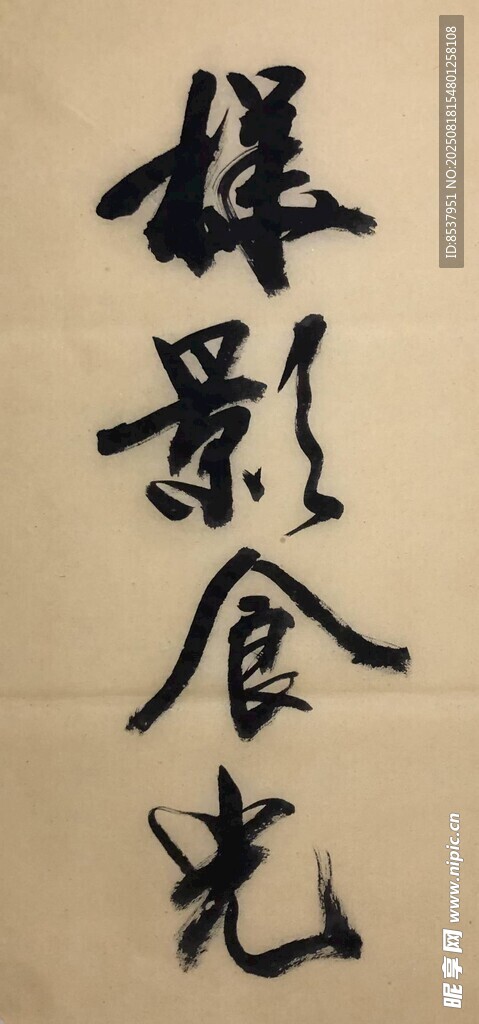 样影食光
ID:8537951 NO:20250818154801258108
昵享网 www.nipic.cn